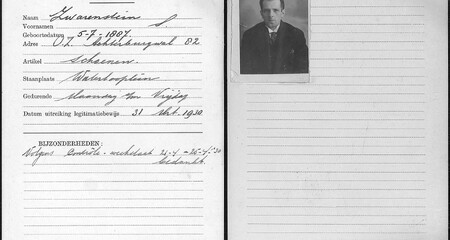 Naam Zwarenstein
Voornamen S.
Geboortedatum 5-7-1887.
Adres O.Z. Achterburgwal 82
Artikel Schoenen.
Staanplaats Waterlooplein
Gedurende Maandag t/m Vrijdag
Datum uitreiking legitimatiebewijs 31 Oct. 1930
BIJZONDERHEDEN:
Volgens Contrôle-werkstaat
bedankt.